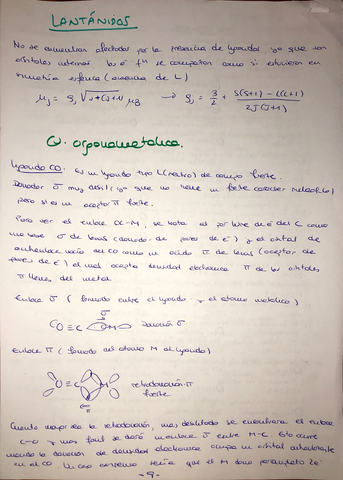 LANTÁNIDOS
No se encuentran afectados por la presencia de ligandos ya que son
orbitales internos, los e⁻ fⁿ se comportan como si estuvieran en
simetría esférica (ausencia de L)
μj = gj √J(J+1) μB → gj = 3/2 + S(S+1) - L(L+1) / 2J(J+1)
Q. organometálica.
Ligando CO: es un ligando tipo L (neutro) de campo fuerte.
Donador σ muy débil (ya que no tiene un fuerte carácter nucleófilo)
pero sí es un aceptor π fuerte.
Para ver el enlace OC-M, se trata al par libre de e⁻ del C como
una base σ de Lewis (donador de pares de e⁻) y el orbital de
antienlace vacío del CO como un ácido π de Lewis (aceptor de
pares de e⁻) el cual acepta densidad electrónica π de los orbitales
π llenos del metal.
Enlace σ (formado entre el ligando y el átomo metálico)
σ
O≡C M donación σ
Enlace π (formado del átomo M al ligando)
O≡C M retrodonación π
fuerte
π
Cuanto mayor sea la retrodonación, más debilitado se encontrará el enlace
C-O y más fuerte se hará el enlace σ entre M-C. Esto ocurre
cuando la donación de densidad electrónica ocupa un orbital antienlazante
en el CO. Un caso extremo sería que el M done por completo 2e⁻
-9-